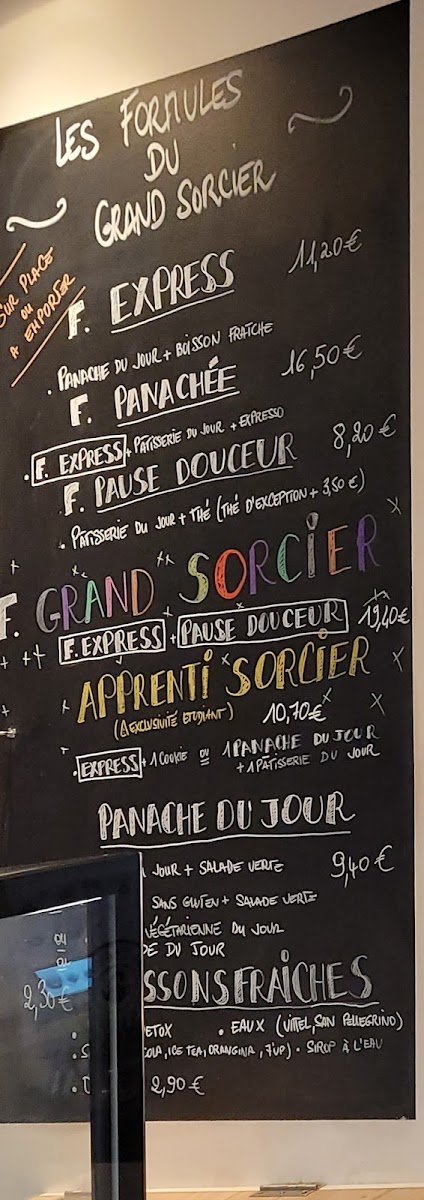 LES FORMULES
DU
GRAND SORCIER
SUR PLACE
OU
A EMPORTER
F. EXPRESS 11,20€
. PANACHE DU JOUR + BOISSON FRAÎCHE
F. PANACHÉE 16,50€
. F. EXPRESS + PÂTISSERIE DU JOUR + EXPRESSO
F. PAUSE DOUCEUR 8,20€
. PÂTISSERIE DU JOUR + THÉ (THÉ D'EXCEPTION + 3,50€)
F. GRAND SORCIER
F. EXPRESS + PAUSE DOUCEUR 19,40€
APPRENTI SORCIER
(Δ EXCLUSIVITÉ ETUDIANT) 10,70€
. EXPRESS + 1 COOKIE OU 1 PANACHE DU JOUR
+ 1 PÂTISSERIE DU JOUR
PANACHE DU JOUR
JOUR + SALADE VERTE 9,40€
SANS GLUTEN + SALADE VERTE
OU VÉGÉTARIENNE DU JOUR
OU DU JOUR
SSONS FRAÎCHES
2,30€
. ETOX . EAUX (VITTEL, SAN PELLEGRINO)
. OLA, ICE TEA, ORANGINA, 7UP) . SIROP À L'EAU
. 2,90€